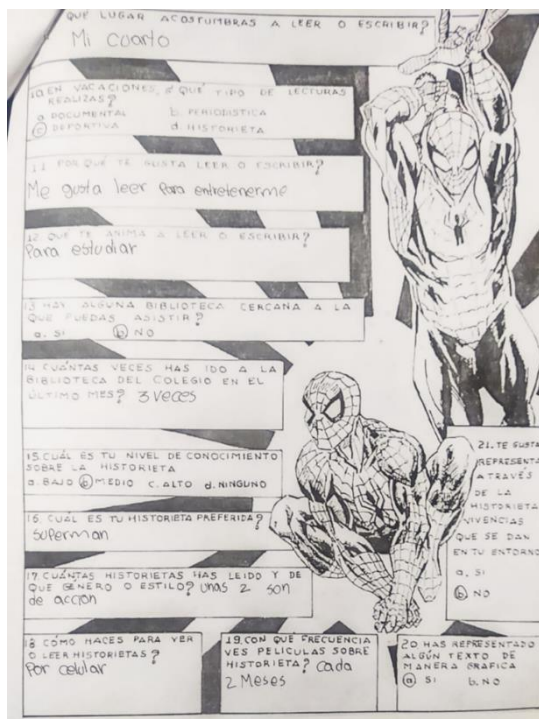 QUE LUGAR ACOSTUMBRAS A LEER O ESCRIBIR?
Mi cuarto
10. EN VACACIONES, ¿ QUÉ TIPO DE LECTURAS
REALIZAS?
a. DOCUMENTAL b. PERIODISTICA
c DEPORTIVA d. HISTORIETA
11. POR QUÉ TE GUSTA LEER O ESCRIBIR?
Me gusta leer Para entretenerme
12. QUÉ TE ANIMA A LEER O ESCRIBIR?
Para estudiar
13. HAY ALGUNA BIBLIOTECA CERCANA A LA
QUE PUEDAS ASISTIR?
a. SI b NO
14. CUÁNTAS VECES HAS IDO A LA
BIBLIOTECA DEL COLEGIO EN EL
ÚLTIMO MES? 3 veces
15. CUÁL ES TU NIVEL DE CONOCIMIENTO
SOBRE LA HISTORIETA
a. BAJO b MEDIO C. ALTO d. NINGUNO
16. CUÁL ES TU HISTORIETA PREFERIDA?
Superman
17. CUÁNTAS HISTORIETAS HAS LEIDO Y DE
QUE GÉNERO O ESTILO? unas 2 son
de acción
18 CÓMO HACES PARA VER
O LEER HISTORIETAS?
Por celular
19. CON QUÉ FRECUENCIA
VES PELICULAS SOBRE
HISTORIETA? Cada
2 Meses
20 HAS REPRESENTADO
ALGÚN TEXTO DE
MANERA GRAFICA
a SI b. NO
21. TE GUSTA
REPRESENTA
A TRAVÉS
DE LA
HISTORIETA
VIVENCIAS
QUE SE DAN
EN TU ENTORNO
a. SI
b NO